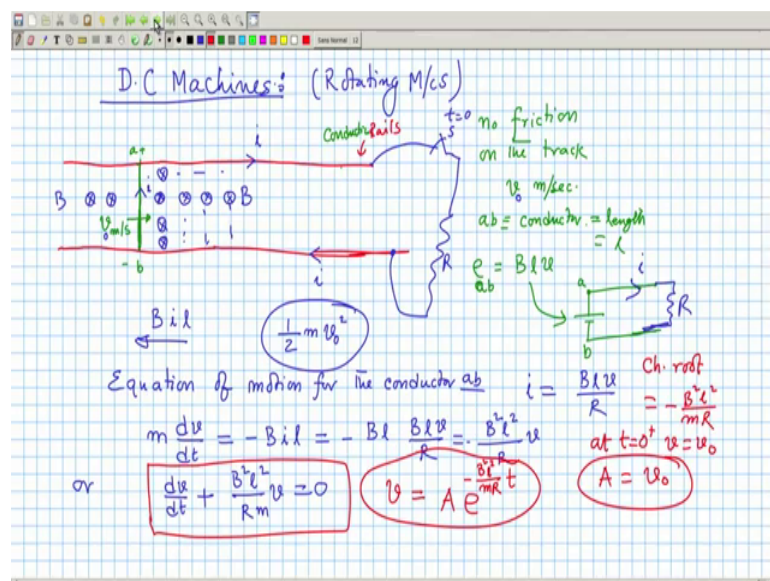 Sans Normal 12
D.C Machines: (Rotating M/cs)
Conductor Rails
t=0
S
no friction
on the track
v₀ m/sec.
ab = conductor = length
= l
a+
i
i
B ⊗ ⊗ ⊗ ⊗ ⊗ ⊗ B
v₀ m/s
- b
i
R
e_ab = Blv
a
i
R
b
Bil
½ m v₀²
Equation of motion for the conductor ab
i = Blv/R
Ch. root
= - B²l²/mR
m dv/dt = - Bil = - Bl Blv/R = - B²l²/R v
at t=0⁺ v=v₀
or
dv/dt + B²l²/Rm v = 0
v = A e^(-B²l²/mR t)
A = v₀